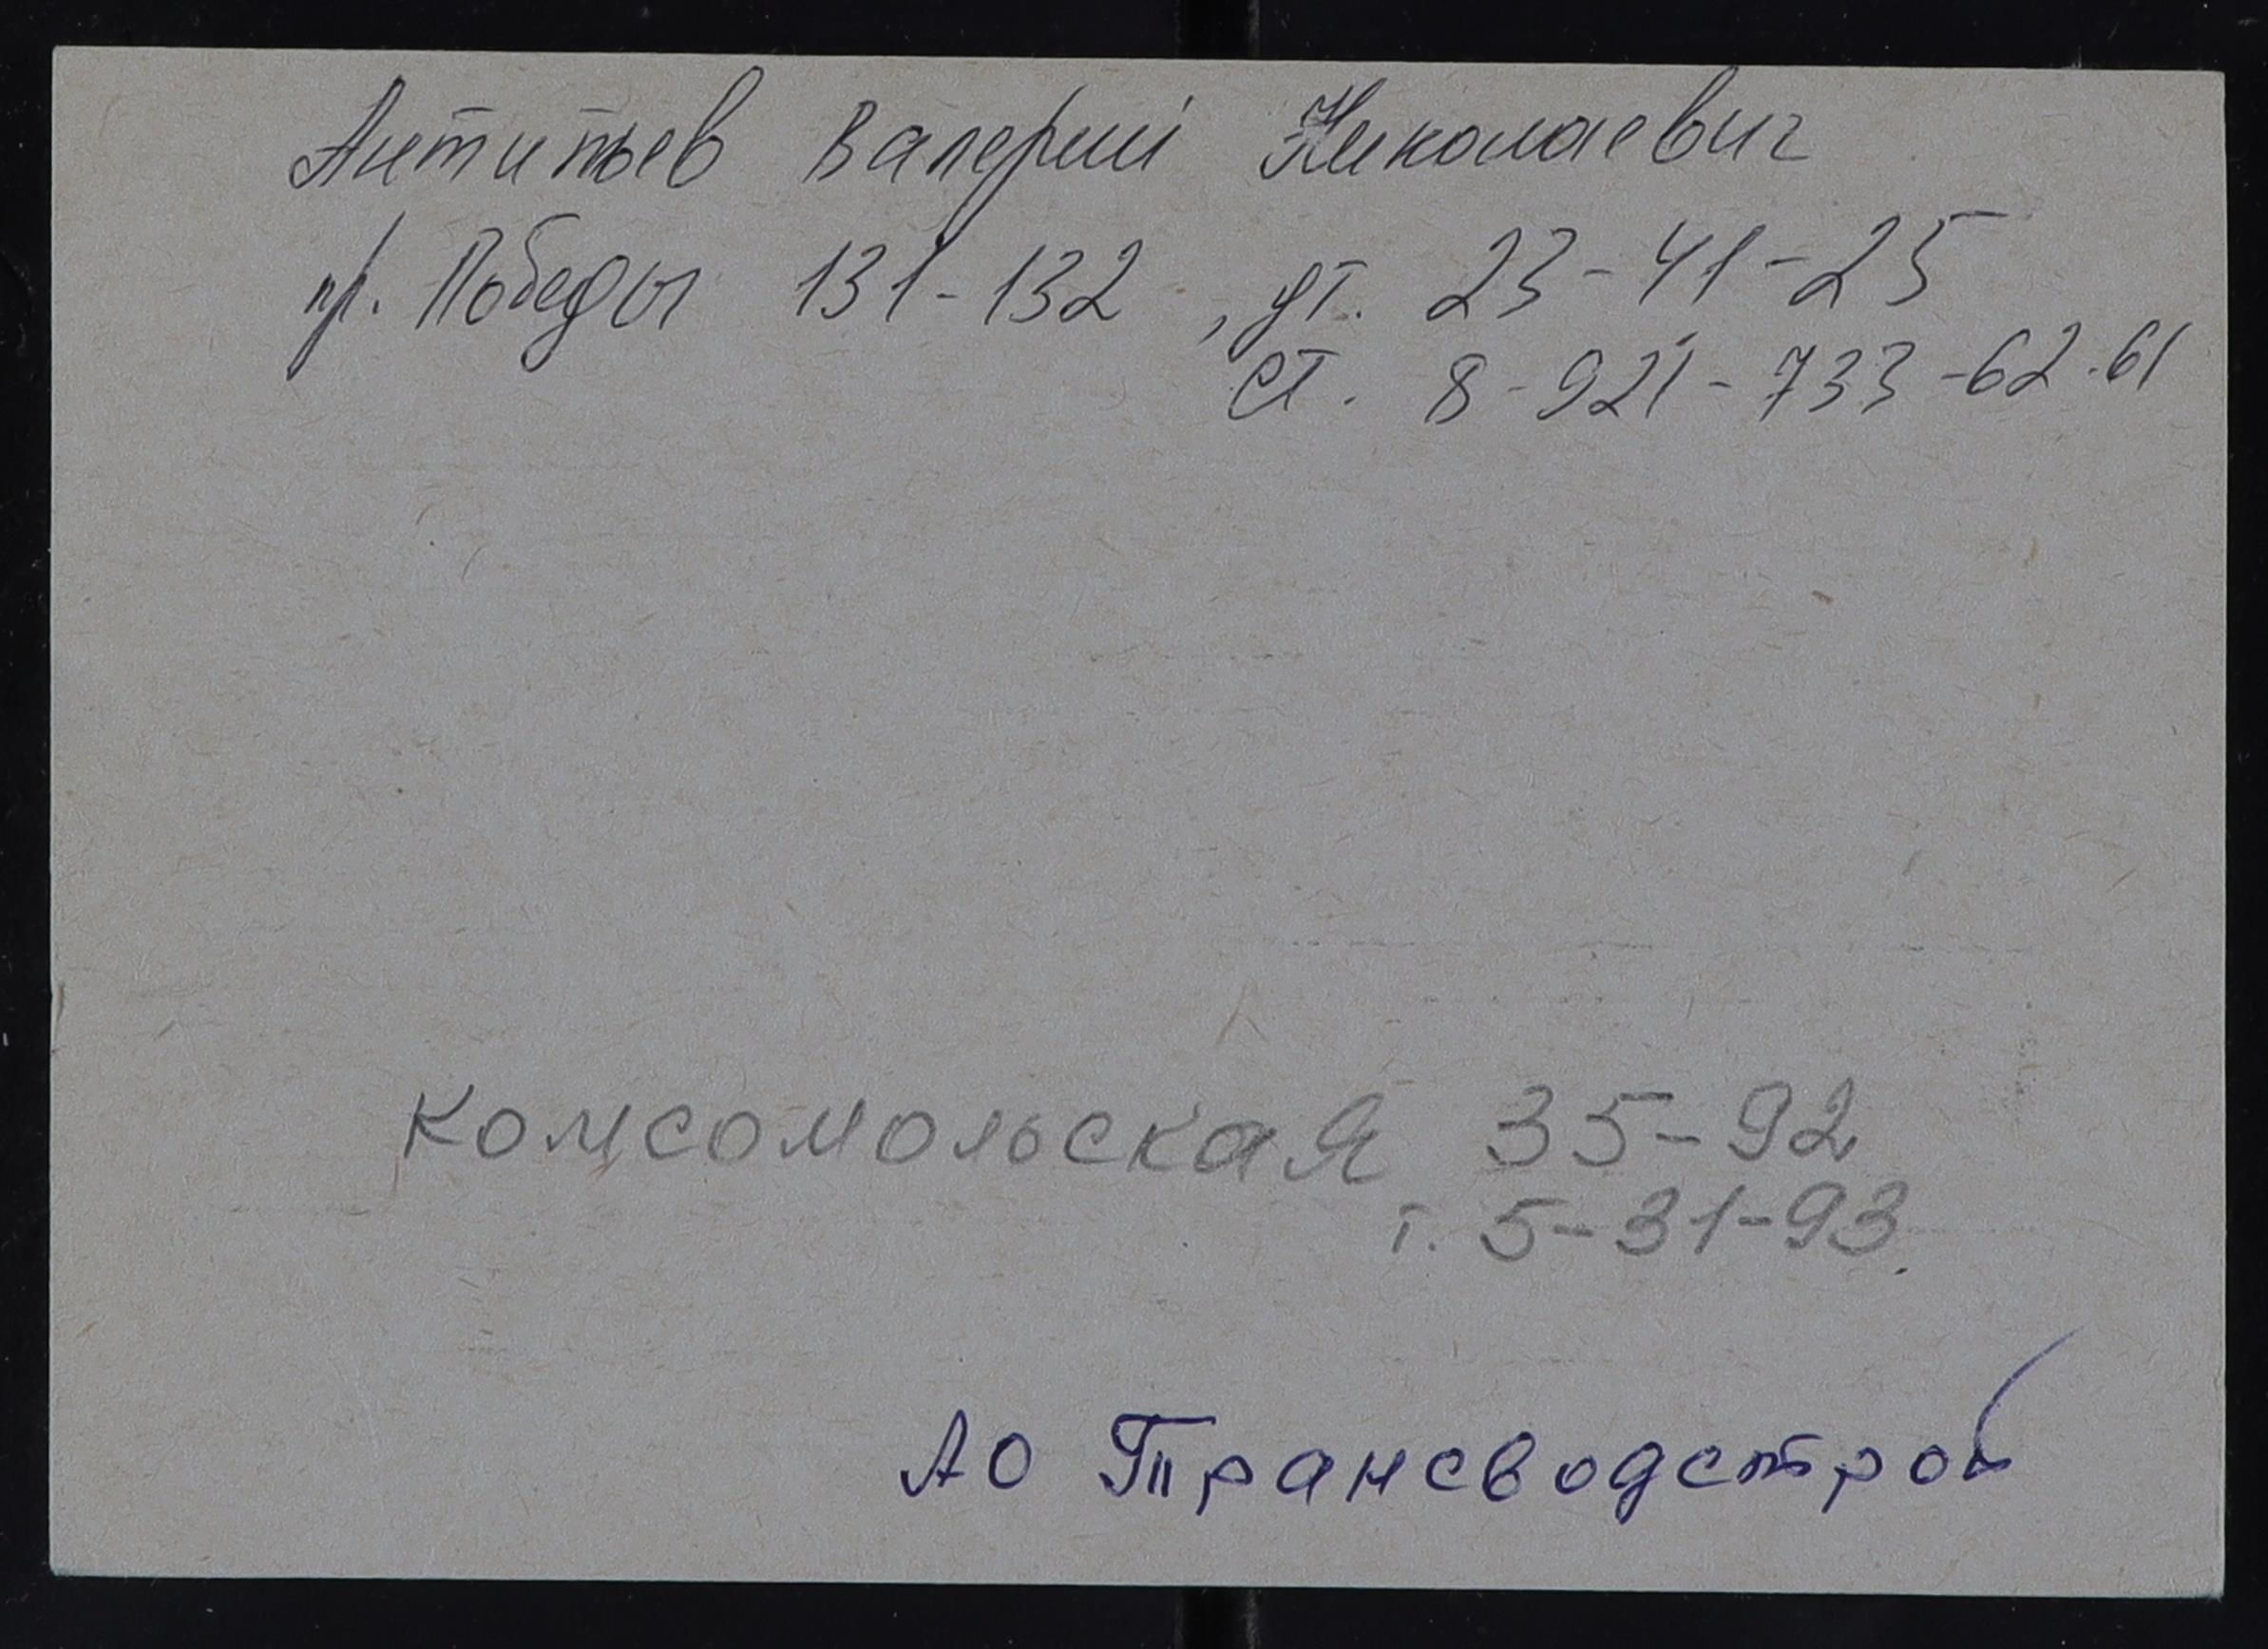 Антипьев Валерий Николаевич
пр. Победы 131-132, дт. 23-41-25
ст. 8-921-733-62-61
Комсомольская 35-92
т. 5-31-93.
АО Трансводстрой